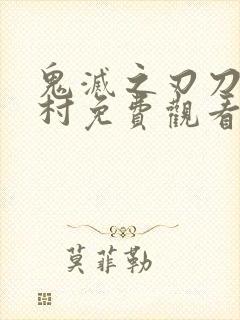 鬼滅之刃刀
村免費觀看
莫菲勒